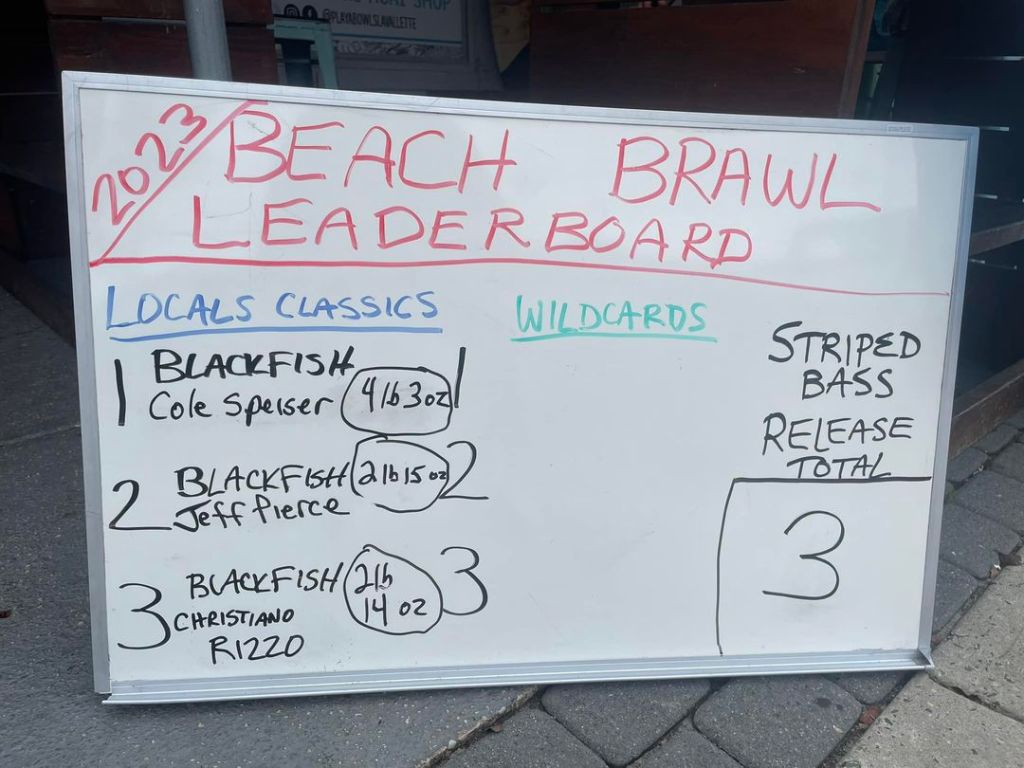 @PLAYABOWLSLAVALLETTE
2023 BEACH BRAWL
LEADERBOARD
LOCALS CLASSICS
1 BLACKFISH 1
Cole Speiser 4 lb 3 oz
2 BLACKFISH 2 lb 15 oz 2
Jeff Pierce
3 BLACKFISH 2 lb 3
CHRISTIANO 14 oz
RIZZO
WILDCARDS
STRIPED
BASS
RELEASE
TOTAL
3